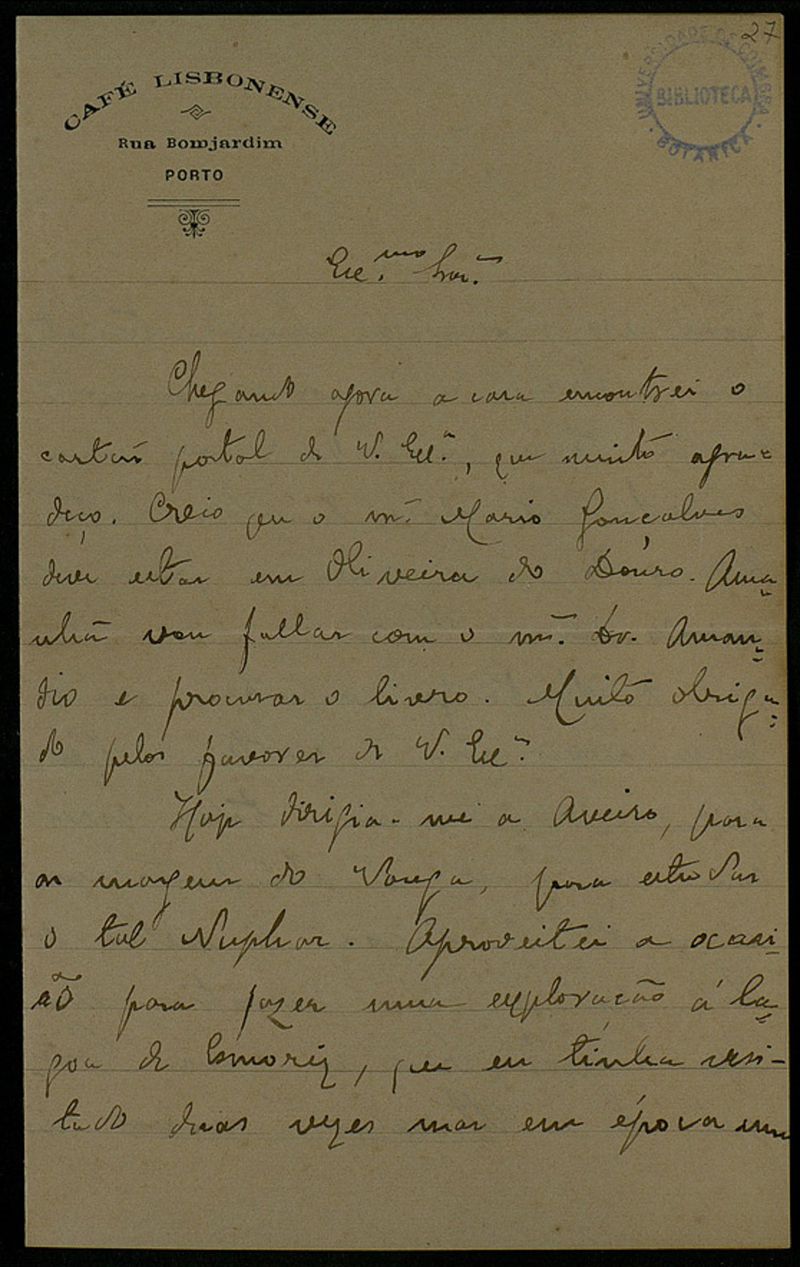 27
UNIVERSIDADE DE COIMBRA
BIBLIOTECA
BOTANICA
CAFÉ LISBONENSE
Rua Bomjardim
PORTO
Exc.mo Snr.
Chegando agora a casa encontrei o
cartão postal de V. Exc.ª, que muito agra-
deço. Creio que o snr. Mario Gonçalves
deve estar em Oliveira do Douro. Ama-
nhã vou fallar com o snr. Dr. Aman-
dio e procurar o livro. Muito obriga-
do pelos favores de V. Exc.ª
Hoje dirigia-me a Aveiro, para
as margens do Vouga, para estudar
o tal Nuphar. Aproveitei a ocasi-
ão para fazer uma exploração á la-
goa de Esmoriz, que eu tinha visi-
tado duas vezes mas em época